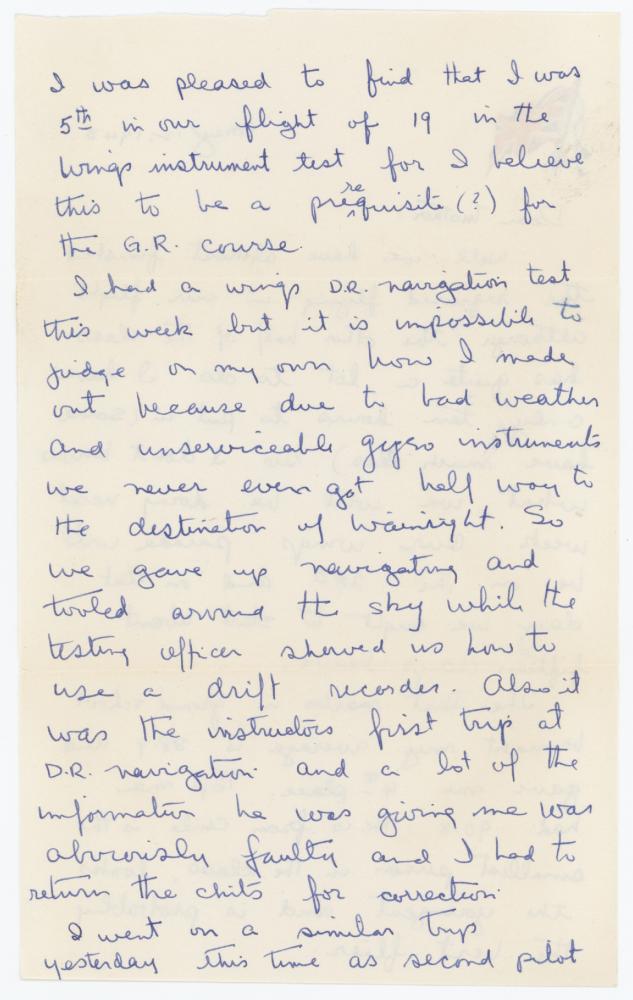 I was pleased to find that I was
5th in our flight of 19 in the
wings instrument test for I believe
this to be a prerequisite (?) for
the G.R. course.
I had a wings D.R. navigation test
this week but it is impossible to
judge on my own how I made
out because due to bad weather
and unserviceable gyro instruments
we never even got half way to
the destination of Wainright. So
we gave up navigating and
tooled around the sky while the
testing officer showed us how to
use a drift recorder. Also it
was the instructors first trip at
D.R. navigation and a lot of the
information he was giving me was
obviously faulty and I had to
return the chits for correction
I went on a similar trip
yesterday this time as second pilot